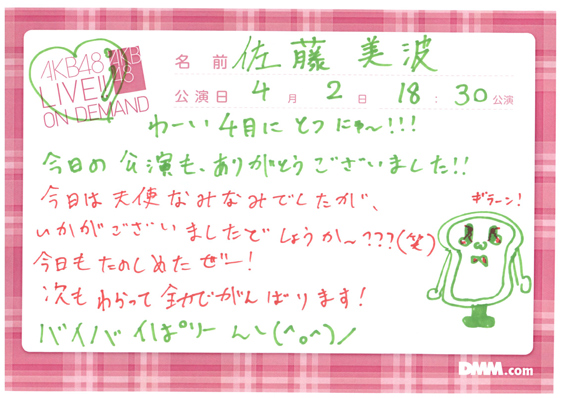 AKB48
LIVE!!
ON DEMAND
AKB
48
名前 佐藤美波
公演日 4月2日 18:30公演
わーい4月にとつにゅ〜!!!
今日の公演も、ありがとうございました!!
今日は天使なみなみでしたが、
いかがございましたでしょうか〜???(笑)
今日もたのしめたぜー!
次もわらって全力でがんばります!
バイバイぱりーんし(^o^)ノ
ギラーン!
DMM.com